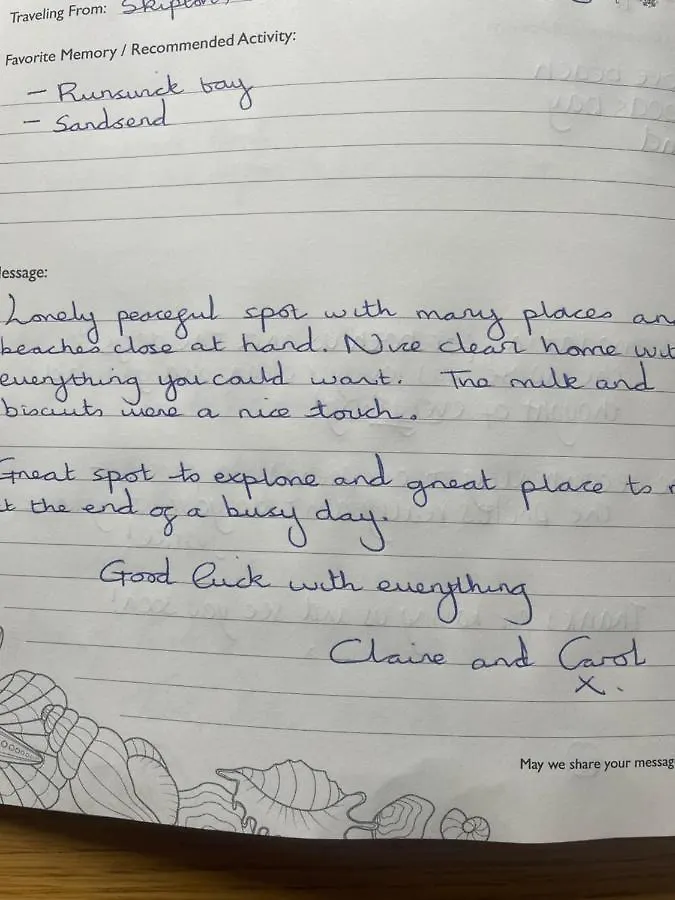 Traveling From: Skipton,
Favorite Memory / Recommended Activity:
– Runswick bay
– Sandsend
essage:
Lovely peaceful spot with many places an
beaches close at hand. Nice clean home wit
everything you could want. The milk and
biscuits were a nice touch.
Great spot to explore and great place to r
t the end of a busy day.
Good luck with everything
Claire and Carol
x.
May we share your messag